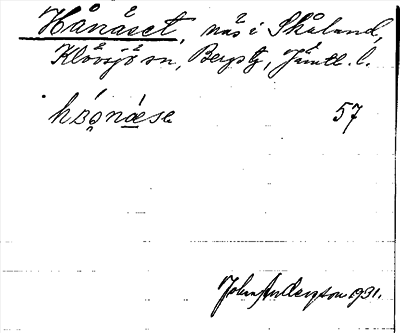 Hånäset, näs i Skåland,
Klövsjö sn, Bergstg, Jämtl. l.
57
John Anderson 1931.